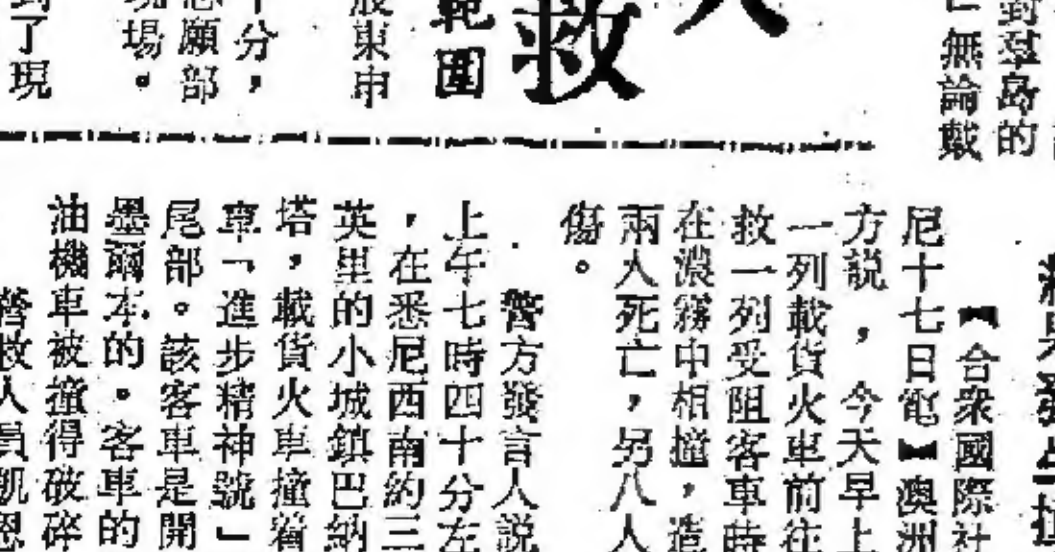 對羣島的
無論戴
救
範圍
股東申
十分，
願部
場。
到了現
【合衆國際社
尼十七日電】澳洲
方説，今天早上
一列載貨火車前往
救一列受阻客車時
在濃霧中相撞，造
兩人死亡，另八人
傷。
警方發言人説
上午七時四十分左
，在悉尼西南約三
英里的小城鎮巴納
塔，載貨火車撞着
車「進步精神號」
尾部。該客車是開
墨爾本的。客車的
油機車被撞得破碎
營救人員凱恩